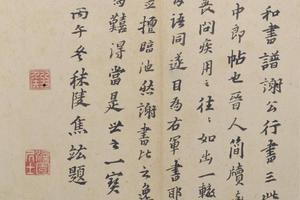 和書譜謝公行書三此
中即帖也晉人簡牘多
喪問疾用之往之如出一轍
語同遂目為右軍書耶
立擅臨池然謝書比之逸
為囏得當是世之一寶
丙午冬秣陵焦竑題